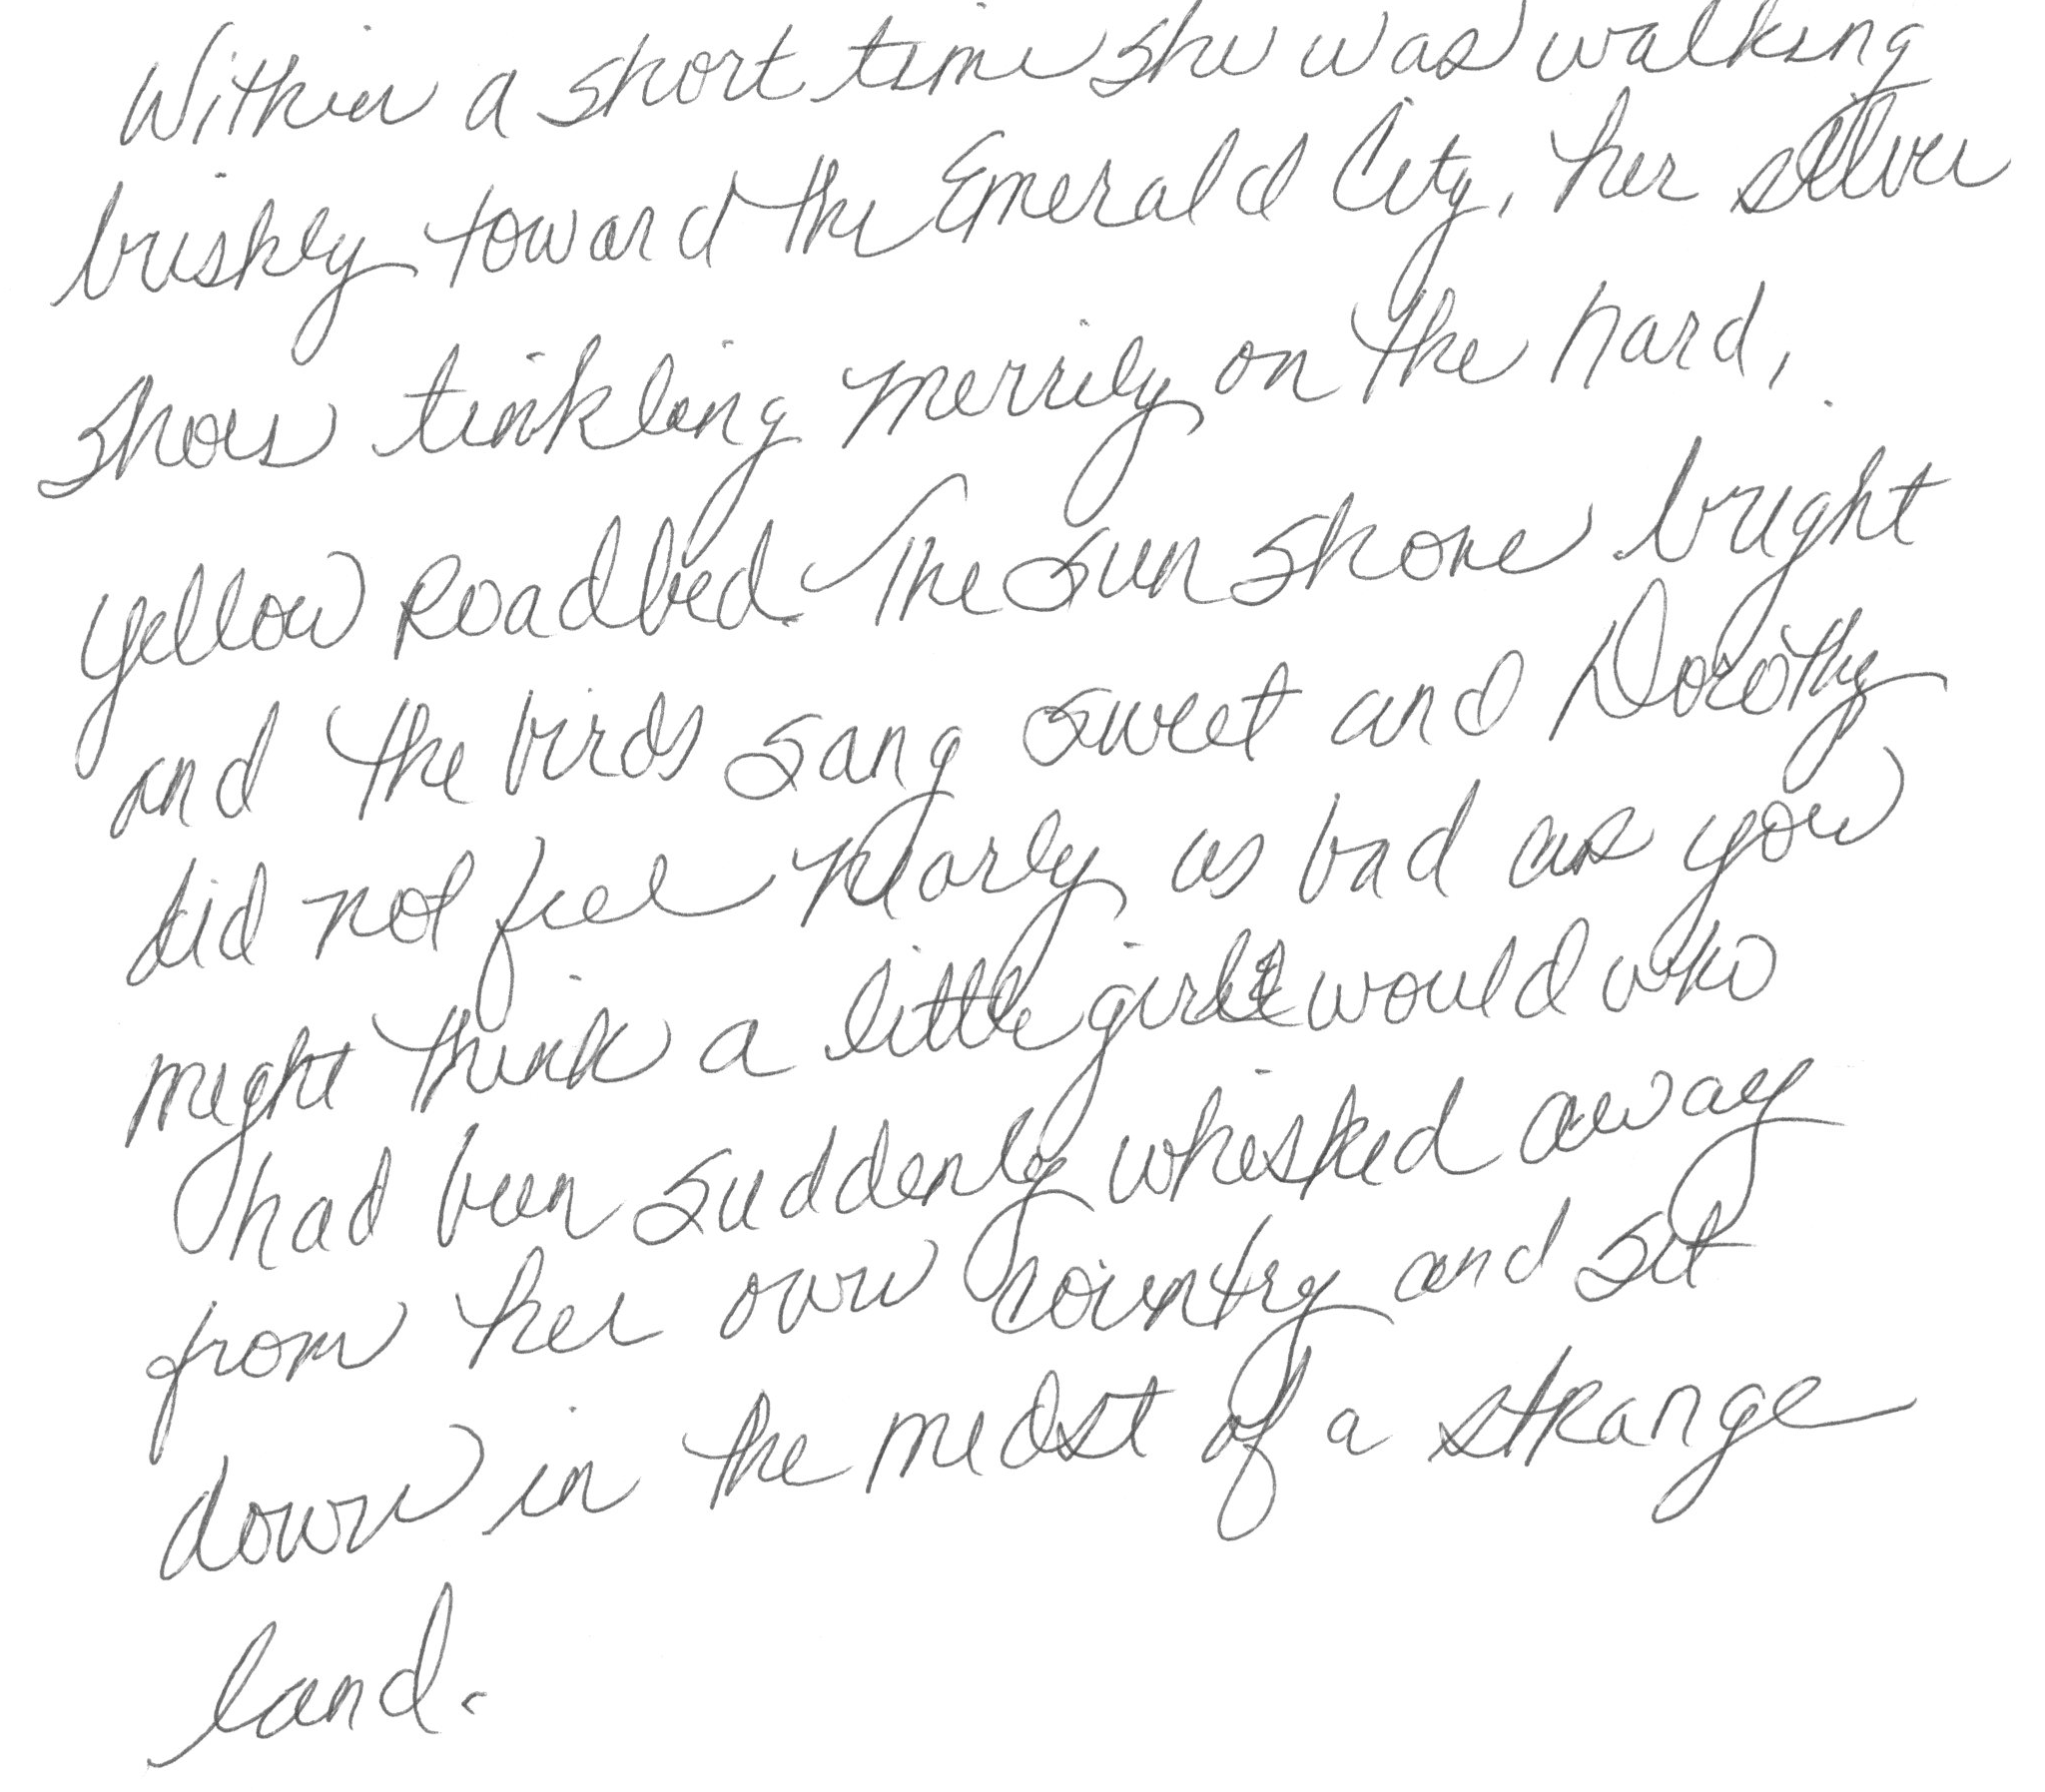 Within a short time she was walking
briskly toward the Emerald City, her silver
shoes tinkling merrily on the hard,
yellow Roadbed. The sun shone bright
and the birds sang sweet and Dorothy
did not feel nearly as bad as you
might think a little girl would who
had been suddenly whisked away
from her own country and set
down in the midst of a strange
land.